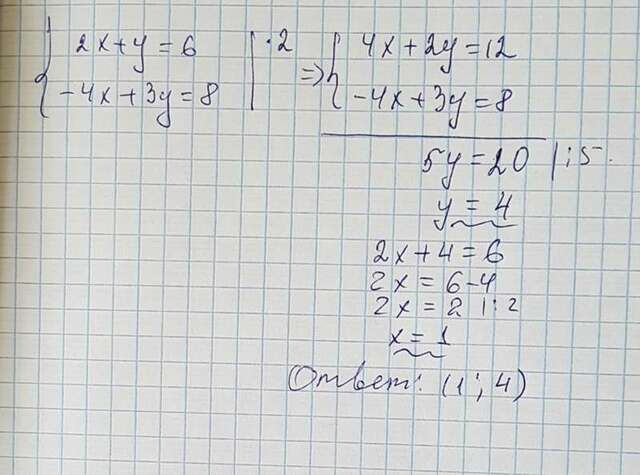 { 2x+y=6 | ·2 => { 4x+2y=12
-4x+3y=8 | -4x+3y=8
5y=20 |:5.
y=4
2x+4=6
2x=6-4
2x=2 |:2
x=1
Ответ: (1; 4)